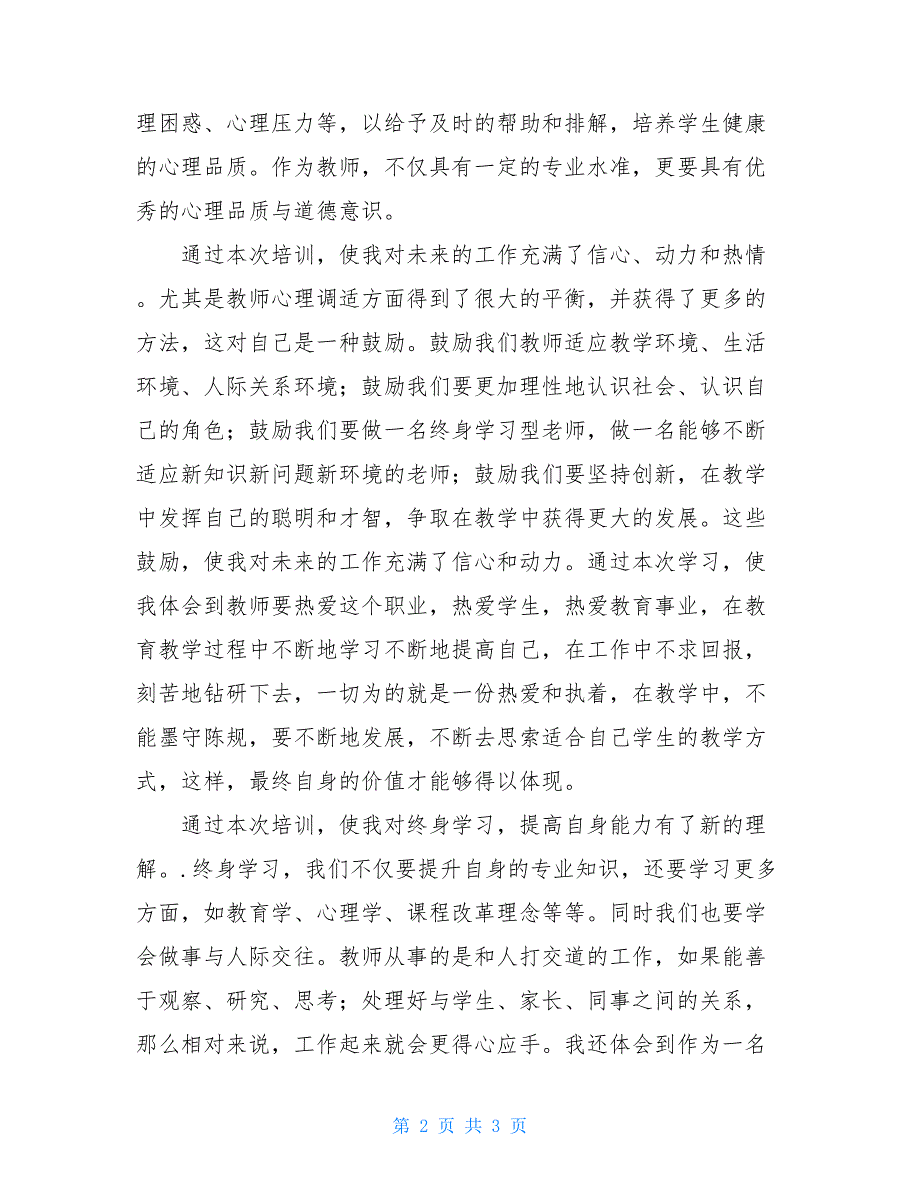 理困惑、心理压力等，以给予及时的帮助和排解，培养学生健康
的心理品质。作为教师，不仅具有一定的专业水准，更要具有优
秀的心理品质与道德意识。
通过本次培训，使我对未来的工作充满了信心、动力和热情
。尤其是教师心理调适方面得到了很大的平衡，并获得了更多的
方法，这对自己是一种鼓励。鼓励我们教师适应教学环境、生活
环境、人际关系环境；鼓励我们要更加理性地认识社会、认识自
己的角色；鼓励我们要做一名终身学习型老师，做一名能够不断
适应新知识新问题新环境的老师；鼓励我们要坚持创新，在教学
中发挥自己的聪明和才智，争取在教学中获得更大的发展。这些
鼓励，使我对未来的工作充满了信心和动力。通过本次学习，使
我体会到教师要热爱这个职业，热爱学生，热爱教育事业，在教
育教学过程中不断地学习不断地提高自己，在工作中不求回报，
刻苦地钻研下去，一切为的就是一份热爱和执着，在教学中，不
能墨守陈规，要不断地发展，不断去思索适合自己学生的教学方
式，这样，最终自身的价值才能够得以体现。
通过本次培训，使我对终身学习，提高自身能力有了新的理
解。.终身学习，我们不仅要提升自身的专业知识，还要学习更多
方面，如教育学、心理学、课程改革理念等等。同时我们也要学
会做事与人际交往。教师从事的是和人打交道的工作，如果能善
于观察、研究、思考；处理好与学生、家长、同事之间的关系，
那么相对来说，工作起来就会更得心应手。我还体会到作为一名
第 2 页 共 3 页